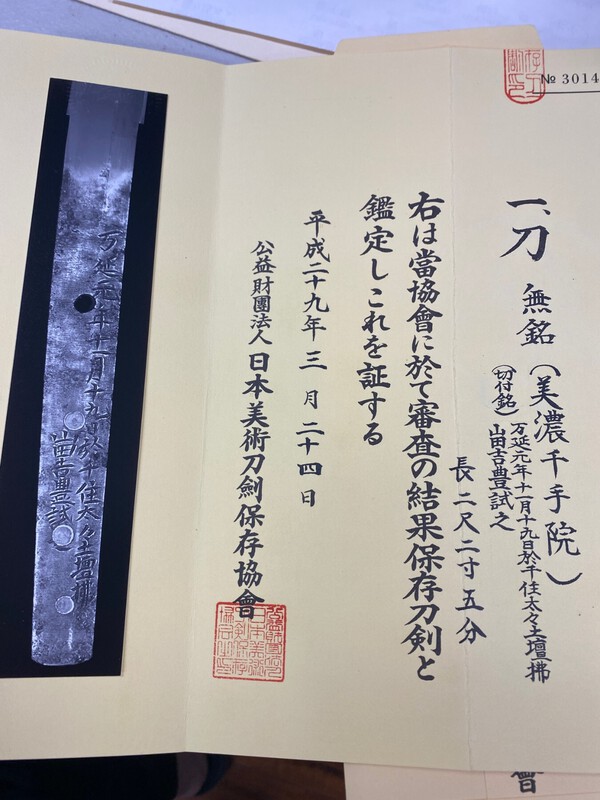 № 3014
一、刀 無銘(美濃千手院)
(切付銘) 万延元年十一月十九日於千住太々土壇拂
山田吉豊試之
長二尺二寸五分
右は當協會に於て審査の結果保存刀剣と
鑑定しこれを証する
平成二十九年三月二十四日
公益財團法人日本美術刀劍保存協會
万延元年十一月十九日於千住太々土壇拂
山田吉豊試之
會